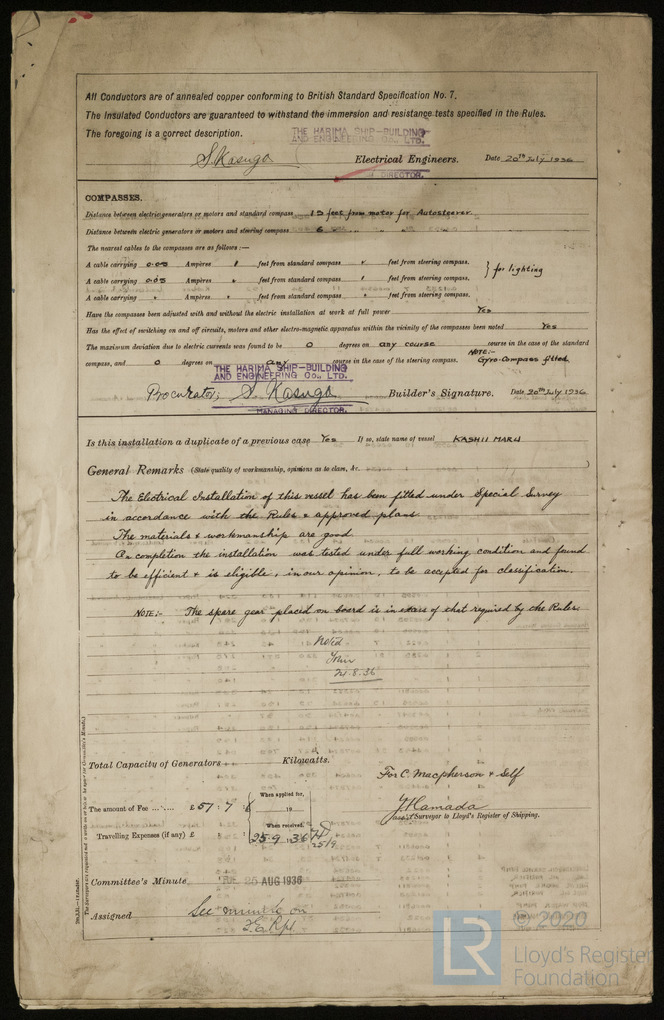 All Conductors are of annealed copper conforming to British Standard Specification No. 7.
The Insulated Conductors are guaranteed to withstand the immersion and resistance tests specified in the Rules.
The foregoing is a correct description.
THE HARIMA SHIP-BUILDING
AND ENGINEERING CO., LTD.
S. Kasuga Electrical Engineers. Date 20th July 1936
DIRECTOR.
COMPASSES.
Distance between electric generators or motors and standard compass 15 feet from motor for Autosteerer.
Distance between electric generators or motors and steering compass 6 " " " "
The nearest cables to the compasses are as follows:—
A cable carrying 0.05 Ampères " feet from standard compass " feet from steering compass.
A cable carrying 0.05 Ampères " feet from standard compass " feet from steering compass.
} for lighting
A cable carrying " Ampères " feet from standard compass " feet from steering compass.
Have the compasses been adjusted with and without the electric installation at work at full power Yes
Has the effect of switching on and off circuits, motors and other electro-magnetic apparatus within the vicinity of the compasses been noted Yes
The maximum deviation due to electric currents was found to be 0 degrees on any course course in the case of the standard
compass, and 0 degrees on any course in the case of the steering compass. NOTE:- Gyro-Compass fitted
THE HARIMA SHIP-BUILDING
AND ENGINEERING CO., LTD.
Procurator, S. Kasuga Builder's Signature. Date 20th July 1936
MANAGING DIRECTOR.
Is this installation a duplicate of a previous case Yes If so, state name of vessel KASHII MARU
General Remarks (State quality of workmanship, opinions as to class, &c.
The Electrical Installation of this vessel has been fitted under Special Survey
in accordance with the Rules & approved plans
The materials & workmanship are good.
On completion the installation was tested under full working condition and found
to be efficient & is eligible, in our opinion, to be accepted for classification.
NOTE:- The spare gear placed on board is in excess of that required by the Rules.
Noted
21.8.36
Total Capacity of Generators Kilowatts.
For C. Macpherson & Self
The amount of Fee ... £57 : 7 :
When applied for,
19
Travelling Expenses (if any) £
When received,
25.9.36
25/9
Y Hamada
Surveyor to Lloyd's Register of Shipping.
Committee's Minute TUE 25 AUG 1936
Assigned See minute on
F.E. Rpt
© 2020
LR
Lloyd's Register
Foundation